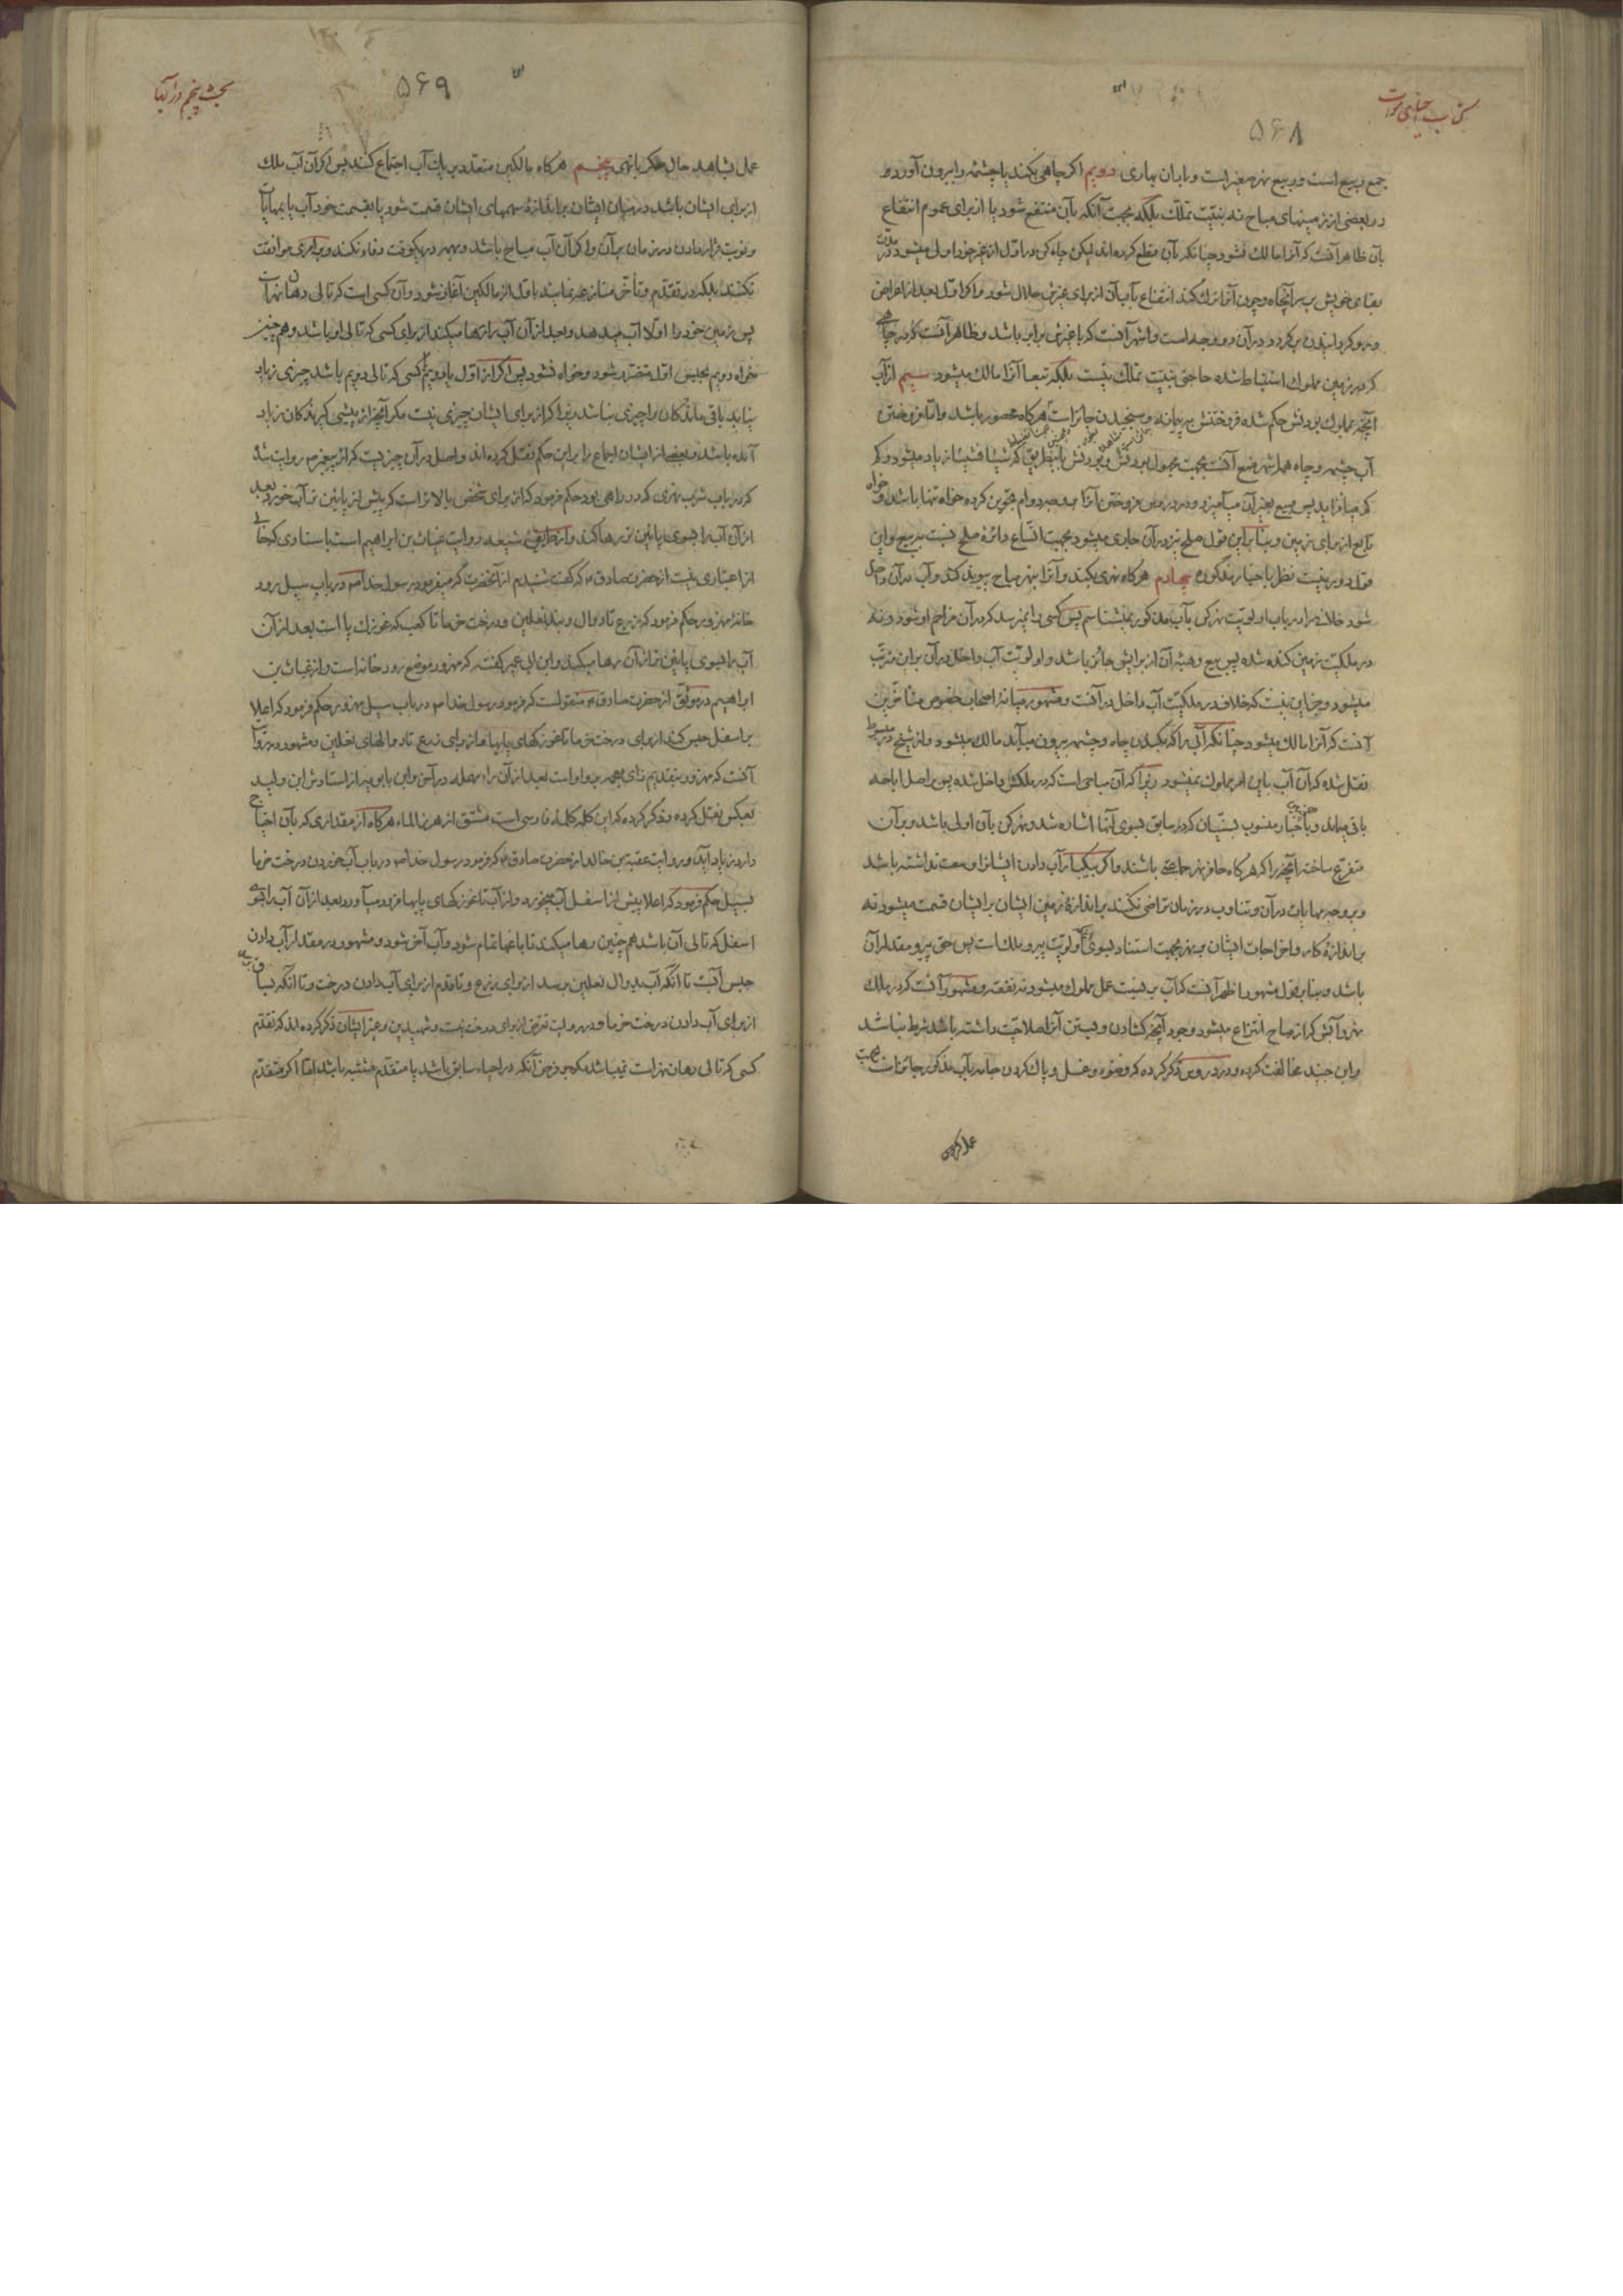 کتاب احیای موات
۵۶۸
جمع ربیع است و ربیع نهر صغیر است و باران بهاری دویم اگر چاهی بکند یا چشمهٔ را بیرون آورد
در بعضی از زمینهای مباح نه بنیّت تملّک بلکه بجهت آنکه بآن منتفع شود یا از برای عموم انتفاع
بآن ظاهر آنست که آنرا مالک نشود چنانکه بآن قطع کرده‌اند لیکن چاه کن در اوّل از غیر خود اولی میشود در مدّت
بقای خویش بر سر آنچاه و چون آنرا ترک کند انتفاع بآب آن از برای غیرش حلال شود و اگر اوّل بعد از اعراض
و در آن دو وجه است و اشهر آنست که با غیرش برابر باشد و ظاهر آنست که در چاهی
که در زمین مملوک استنباط شده حاجتی بنیّت تملّک نیست بلکه تبعا آنرا مالک میشود سیم از آب
آنچه بمملوک بودنش حکم شده فروختنش به پیمانه و سنجیدن جایز است هرگاه محصور باشد و امّا فروختن
آب چشمه و چاه همه اشهر منع آنست بجهت مجهول بودنش و بودنش باینطریق که شیئا فشیئا زیاد میشود و کم
که میافزاید پس مبیع بغیر آن میآمیزد و در دروس فروختن آنرا بر وجه دوام تجویز کرده خواه تنها باشد و خواه
تابع از برای زمین و بنا بر این قول صلح نیز در آن جاری میشود بجهت اتّساع دائرهٔ صلح نسبت به بیع و این
قول دور نیست نظر باخبار مذکوره چهارم هرگاه نهری بکند و آنرا بنهر مباح پیوند کند و آب در آن داخل
شود خلافی را در باب اولویّت نهر کن بآب مذکور نمیشناسم پس کسی را نمیرسد که در آن مزاحم او شود و نه
در ملکیّت زمین کنده شده پس بیع و هبهٔ آن از برایش جائز باشد و اولویّت آب داخل در آن بر این مترتّب
میشود و جز این نیست که خلاف در ملکیّت آب داخل در آنست و مشهور میانهٔ اصحاب خصوص متأخّرین
آنست که آنرا مالک میشود چنانکه آبی را که بکندن چاه و چشمه بیرون میآید مالک میشود و از شیخ در مبسوط
نقل شده که آن آب باین امر مملوک نمیشود زیرا که آن مباحی است که در ملکش داخل شده پس بر اصل اباحه
باقی میماند و باخبار منسوب بسنّیان که در سابق بسوی آنها اشاره شد و نهر کن بآن اولی باشد و بر آن
متفرّع ساخته آنچه را که هرگاه حافر نهر جماعتی باشند و اگر بیکبار آب دادن ایشانرا وسعت نداشته باشد
و بر وجه مهایات در آن و تناوب در زمان تراضی نکنند بر اندازهٔ زمین ایشان بر ایشان قسمت میشود نه
بر اندازهٔ کار و اخراجات ایشان بر نهر بجهت استناد بسوی اولویّت پیرو ملک است پس حق پیرو مقدار آن
باشد و بنا بر قول مشهور اظهر آنست که آب بر نسبت عمل مملوک میشود نه نفقه و مشهور آنست که در ملک
نهر و آبش که از مباح انتزاع میشود وجود آنچه گشادن و بستن آنرا صلاحیّت داشته باشد شرط نباشد
و ابن جنید مخالفت کرده و در دروس ذکر کرده که وضوء و غسل و پاک کردن جامه بآب مذکور جائز است بجهت
عمل کردن
بحث پنجم در آبها
۵۶۹
عمل بشاهد حال مگر با نهی پنجم هرگاه مالکین متعدّد بر یک آب اجتماع کنند پس اگر آن آب ملک
از برای ایشان باشد در میان ایشان بر اندازهٔ سهمهای ایشان قسمت شود یا بقسمت خود آب یا بمهایات
و نوبت قرار دادن در زمان بر آن و اگر آن آب مباح باشد و بهمه در یکوقت وفاء نکند و برابری موافقت
نکنند بلکه در تقدّم و تأخّر منازعه نمایند باوّل از مالکین آغاز شود و آن کسی است که تالی دهان نهر است
پس زمین خود را اوّلا آب میدهد و بعد از آن آب را رها میکند از برای کسی که تالی او باشد و هم چنین
خواه دویم بحبس اوّل متضرّر شود و خواه نشود پس اگر از اوّل یا دویم یا کسی که تالی دویم باشد چیزی زیاد
نیاید باقی ماندگان را چیزی نباشد زیرا که از برای ایشان چیزی نیست مگر آنچه از پیشی گیرندگان زیاد
آمده باشد و بعضی از ایشان اجماع را بر این حکم نقل کرده‌اند و اصل در آن چیزیست که از پیغمبر ص روایت شد
که در باب شرب نهری که در راهی بود حکم فرمود که از برای شخص بالاتر است که پیش از پایین تر آب خورد و بعد
از آن آب را بسوی پایین تر رها کند و از طریق شیعه روایت غیاث بن ابراهیم است باسنادی که خالی
از اعتباری نیست از حضرت صادق ع که گفت شنیدم از آنحضرت که میفرمود رسول خدا ص در باب سیل رود
خانهٔ مهزور حکم فرمود که زرع تا دوال و بند نعلین و درخت خرما تا کعب که غوزک پا است بعد از آن
آب را بسوی پایین تر از آن رها میکند و ابن ابی عمیر گفته که مهزور موضع رود خانه است و از غیاث بن
ابراهیم در موثّق از حضرت صادق ع منقولست که فرمود رسول خدا ص در باب سیل مهزور حکم فرمود که اعلا
بر اسفل حبس کند از برای درخت خرما تا غوزکهای پایها و از برای زرع تا دوالهای نعلین و مشهور در روایت
آنست که مهزور بتقدیم زای معجمه بر واو است بعد از آن راء مهمله در آخر و ابن بابویه از استادش ابن ولید
بعکس نقل کرده و ذکر کرده که این کلمه کلمهٔ فارسی است مشتق از هرز الماء هرگاه از مقداری که بآن احتیاج
دارد زیاد آید و روایت عقبة بن خالد از حضرت صادق ع که فرمود رسول خدا ص در باب آب خوردن درخت خرما
بسیل حکم فرمود که اعلا پیش از اسفل آب میخورد و از آب تا غوزکهای پایها فرود میآورد و بعد از آن آب را بسوی
اسفل که تالی آن باشد هم چنین رها میکند تا باغها تمام شود و آب آخر شود و مشهور در مقدار آب دادن
حبس آبست تا آنکه آب بدوال نعلین برسد از برای زرع و تا قدم از برای آب دادن درخت و تا آنکه بساق رسد
از برای آب دادن درخت خرما و در روایت تعرّض از برای درخت نیست و شهیدین و غیر ایشان ذکر کرده‌اند که تقدّم
کسی که تالی دهان نهر است نمیباشد مگر بر فرض آنکه در احیاء سابق باشد یا متقدّم مشتبه باشد امّا اگر متقدّم